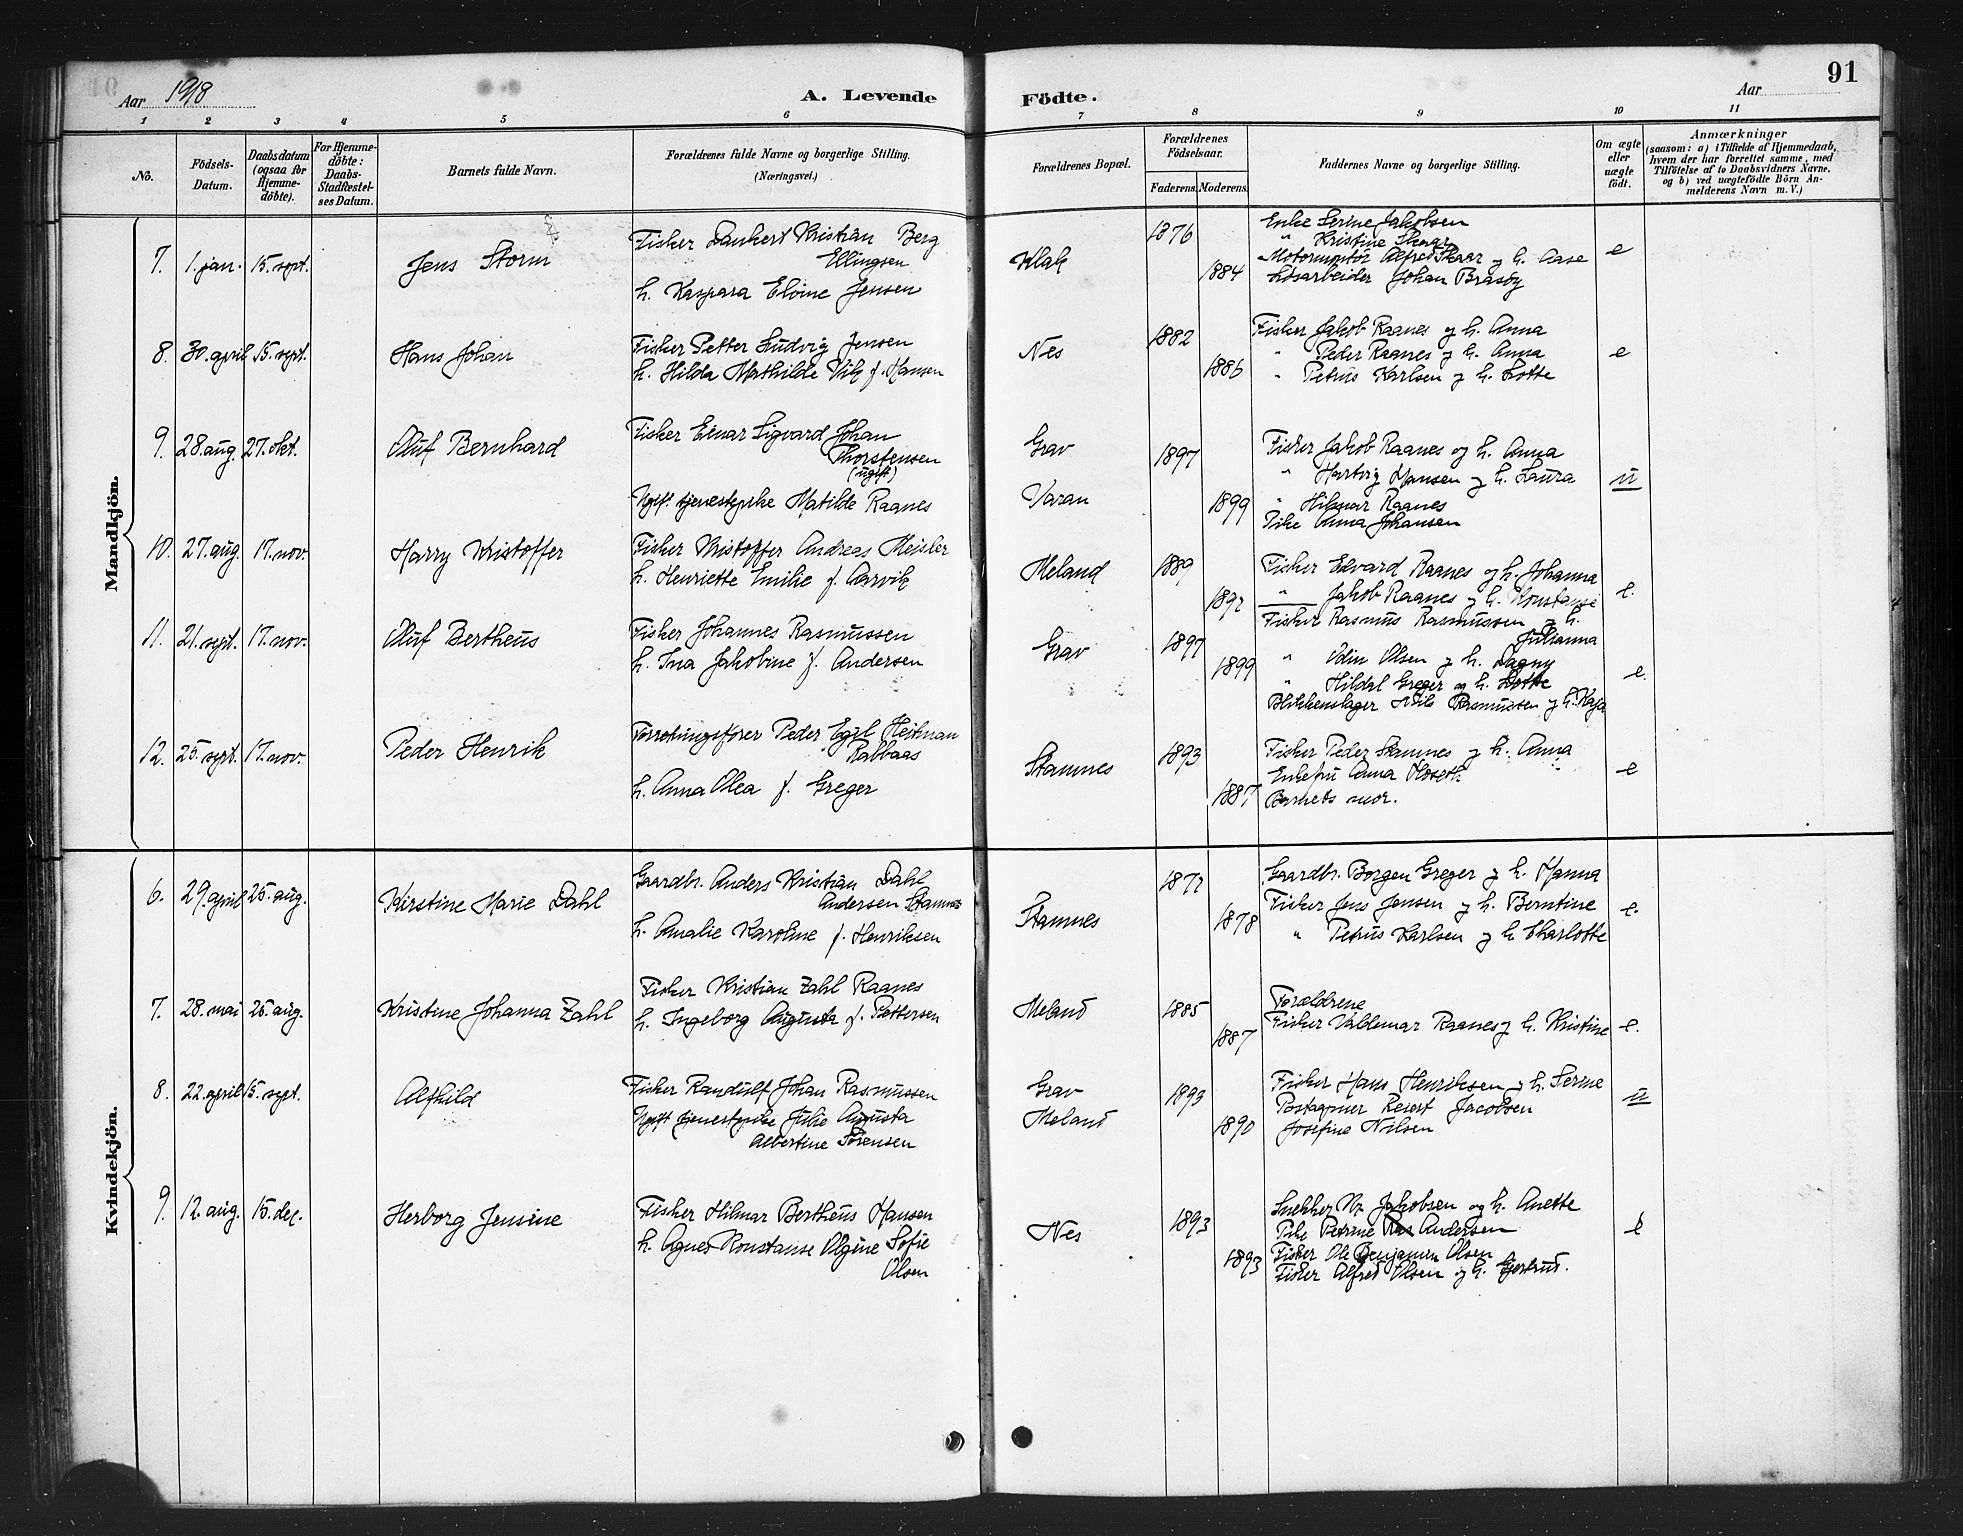 Aar 1918
A. Levende
Födte.
Aar
91
1 2 3 4 5 6 7 8 9 10 11
No.
Födsels-
Datum.
Daabsdatum
(ogsaa for
Hjemme-
döbte).
For Hjemme-
döbte:
Daabs-
Stadfæstel-
ses Datum.
Barnets fulde Navn.
Forældrenes fulde Navne og borgerlige Stilling.
(Næringsvei.)
Forældrenes Bopæl.
Forældrenes
Födselsaar.
Faderens. Moderens.
Faddernes Navne og borgerlige Stilling.
Om ægte
eller
uægte
födt.
Anmærkninger
(saasom: a) i Tilfælde af Hjemmedaab,
hvem der har forrettet samme, med
Tilföielse af to Daabsvidners Navne.
og b) ved uægtefödte Börn An-
melderens Navn m.V.)
Mandkjön.
7. 1. jan. 15. sept. Jens Storm
Fisker Dankert Kristian Berg
Ellingsen
h. Kaspara Eloine Jensen
Klak
1876
1884
Enke Serine Jakobsen
" Kristine Skaar
Motormontör Alfred Skaar og h. Aase
Lösarbeider Johan Brasöy
e
8. 30. april 15. sept. Hans Johan
Fisker Petter Ludvig Jensen
h. Hilda Mathilde Vik f. Hansen
Nes
1882
1886
Fisker Jakob Raanes og h. Anna
" Peder Raanes og h. Anna
" Petrus Karlsen og h. Lotte
e
9. 28. aug. 27. okt. Oluf Bernhard
Fisker Einar Sigvard Johan
Thorstensen
(ugift)
Ugift tjenestepike Matilde Raanes
Grav
Varan
1897
1899
Fisker Jakob Raanes og h. Anna
" Hartvig Hansen og h. Laura
" Hilmar Raanes
Pike Anna Johansen
u
10. 27. aug. 17. nov. Harry Kristoffer
Fisker Kristoffer Andreas Meisler
h. Henriette Emilie f. Aarvik
Meland
1889
1892
Fisker Edvard Raanes og h. Johanna
" Jakob Raanes og h. Konstanse
e.
11. 21. sept. 17. nov. Oluf Bertheus
Fisker Johannes Rasmussen
h. Ina Jakobine f. Andersen
Grav
1897
1899
Fisker Rasmus Rasmussen og h.
Julianna
" Odin Olsen og h. Dagny
" Hildal Greger og h. Lotte
Blikkenslager Nils Rasmussen og h. Kaja
e.
12. 25. sept. 17. nov. Peder Henrik
Forretningsförer Peder Egil Heitman
Rabbaas
h. Anna Olea f. Greger
Stamnes
1893
1887
Fisker Peder Stamnes og h. Anna
Enkefru Anna Holseth
Barnets mor.
e
Kvindekjön.
6. 29. april 25. aug. Kirstine Marie Dahl
Gaardbr. Anders Kristian Dahl
Andersen Stamnes
h. Amalie Karoline f. Henriksen
Stamnes
1877
1878
Gaardbr. Borgen Greger og h. Hanna
Fisker Jens Jensen og h. Berntine
" Petrus Karlsen og h Charlotte
e.
7. 28. mai 25. aug. Kristine Johanna Zahl
Fisker Kristian Zahl Raanes
h. Ingeborg Augusta f. Pettersen
Meland
1885
1887
Forældrene
Fisker Valdemar Raanes og h. Kristine
e.
8. 22. april 15. sept. Alfhild
Fisker Randulf Johan Rasmussen
Ugift tjenestepike Julie Augusta
Albertine Sörensen
Grav
Meland
1893
1890
Fisker Hans Henriksen og h. Serine
Postaapner Jacobsen
Josefine Nilsen
u
9. 12. aug. 15. dec. Herborg Jensine
Fisker Hilmar Bertheus Hansen
h. Agnes Konstanse Olgine Sofie
Olsen
Nes
1893
1893
Snekker Jakobsen og h. Anette
Pike Petrine Andersen
Fisker Ole Benjamin Olsen
Fisker Alfred Olsen og h. Gjertrud.
e